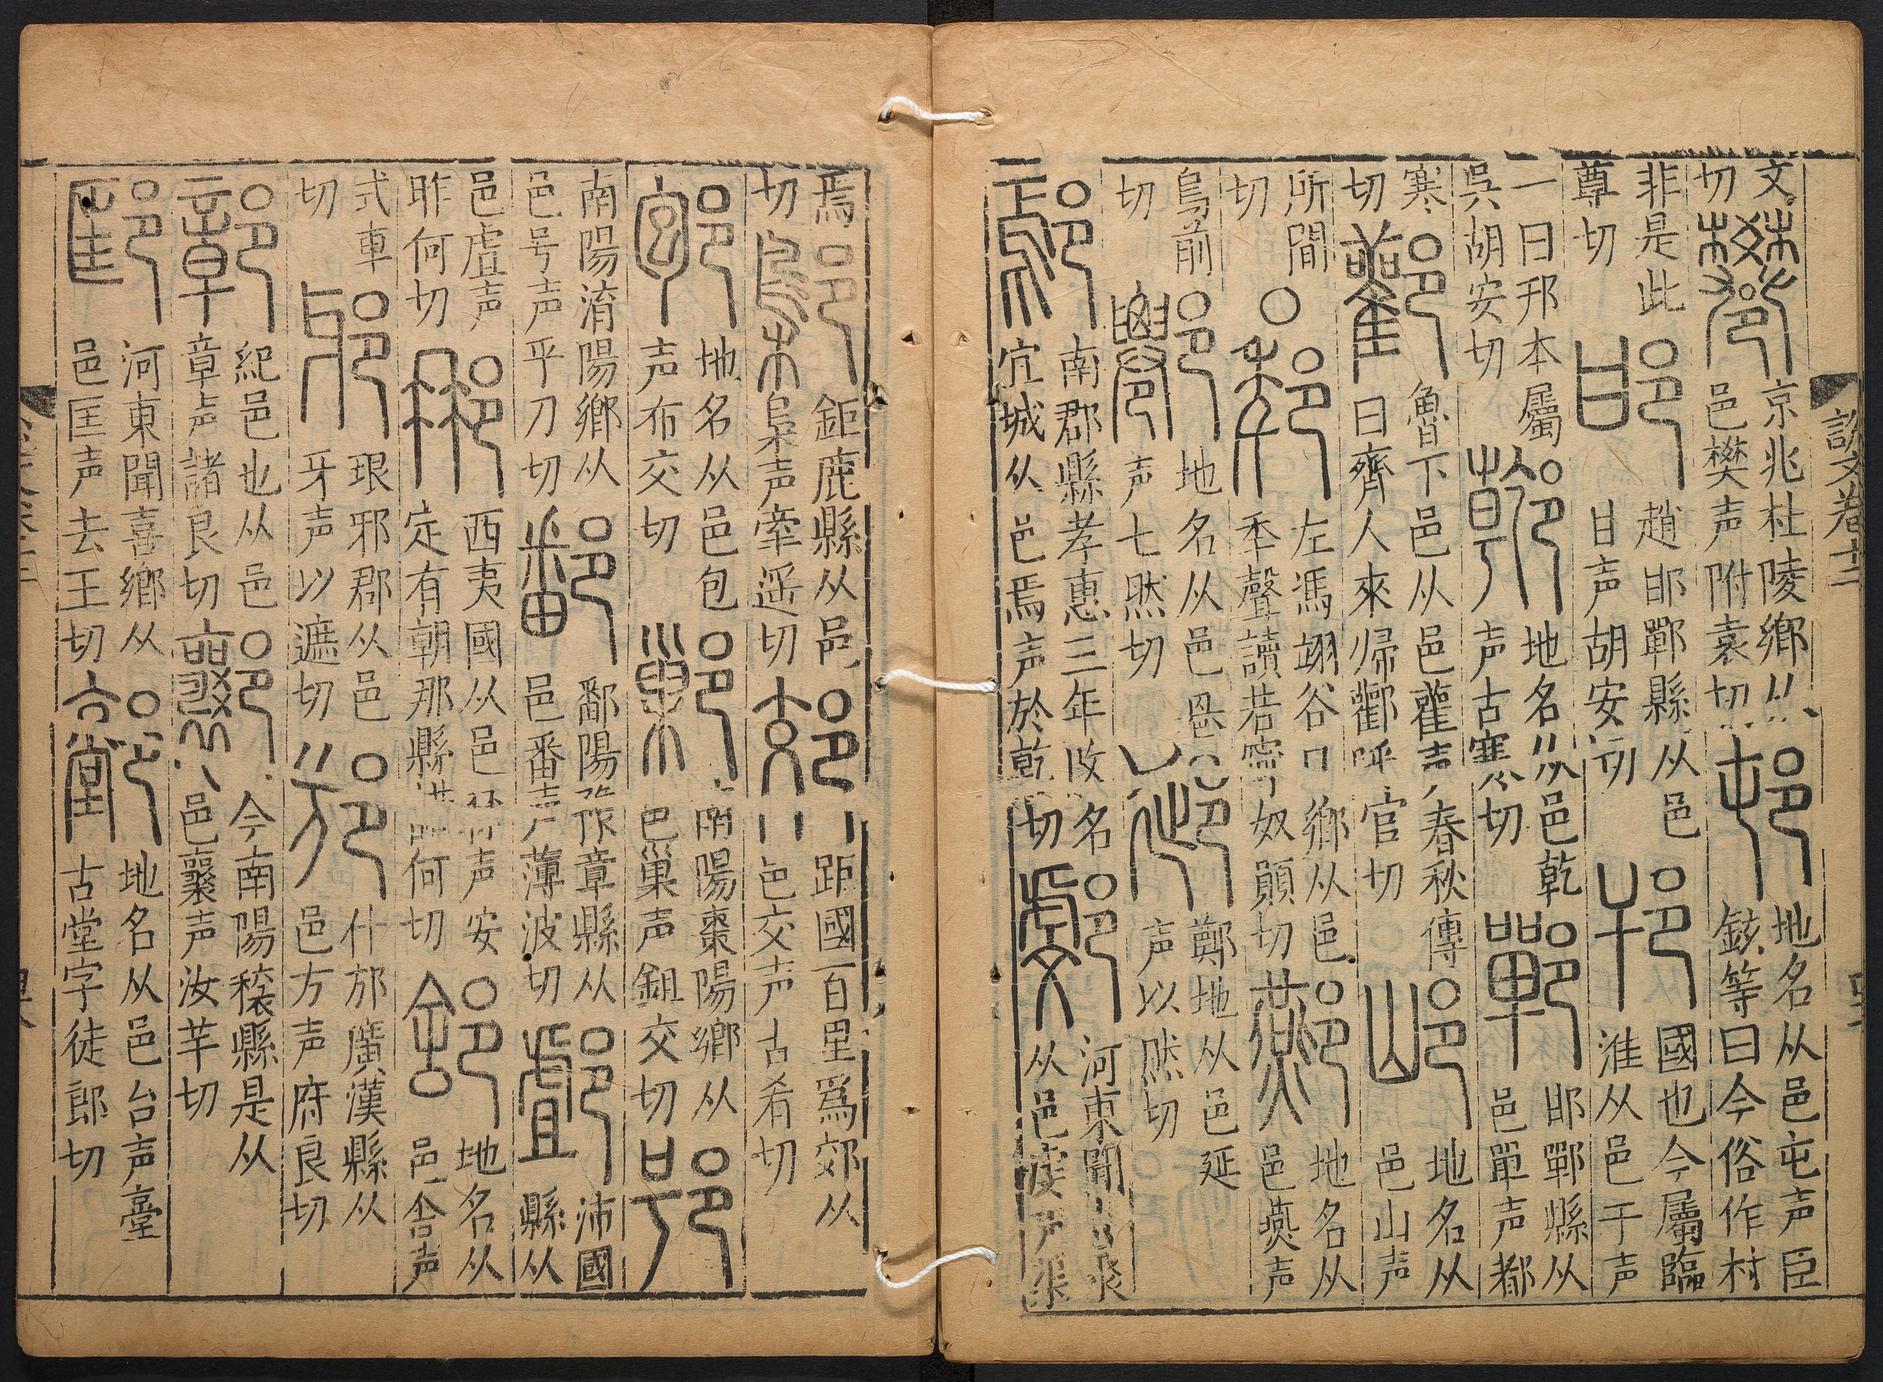 說文卷十二
文切 京兆杜陵鄉从邑樊声附袁切 邨 地名从邑屯声臣鉉等曰今俗作村
非是此尊切 邯 趙邯鄲縣从邑甘声胡安切 邗 國也今屬臨淮从邑干声
一曰邗本屬吳胡安切 地名从邑乾声古寒切 鄲 邯鄲縣从邑單声都
寒切 酄 魯下邑从邑雚声春秋傳曰齊人來歸酄呼官切 地名从邑山声
所間切 左馮翊谷口鄉从邑秊聲讀若寧奴顛切 酀 地名从邑燕声
烏前切 地名从邑声七然切 鄭地从邑延声以然切
鄢 南郡縣孝惠三年改名宜城从邑焉声於乾切 河東聞喜聚从邑虔声渠
焉切 鄡 鉅鹿縣从邑梟声牽遥切 郊 距國百里爲郊从邑交声古肴切
地名从邑包声布交切 鄛 南陽棗陽鄉从邑巢声鉏交切
南陽淯陽鄉从邑号声乎刀切 鄱 鄱陽豫章縣从邑番声薄波切 沛國縣从
邑虘声昨何切 那 西夷國从邑冄声安定有朝那縣諾何切 地名从邑舍声
式車切 邪 琅邪郡从邑牙声以遮切 邡 什邡廣漢縣从邑方声府良切
鄣 紀邑也从邑章声諸良切 今南陽穰縣是从邑襄声汝羊切
邼 河東聞喜鄉从邑匡声去王切 地名从邑台声臺古堂字徒郎切